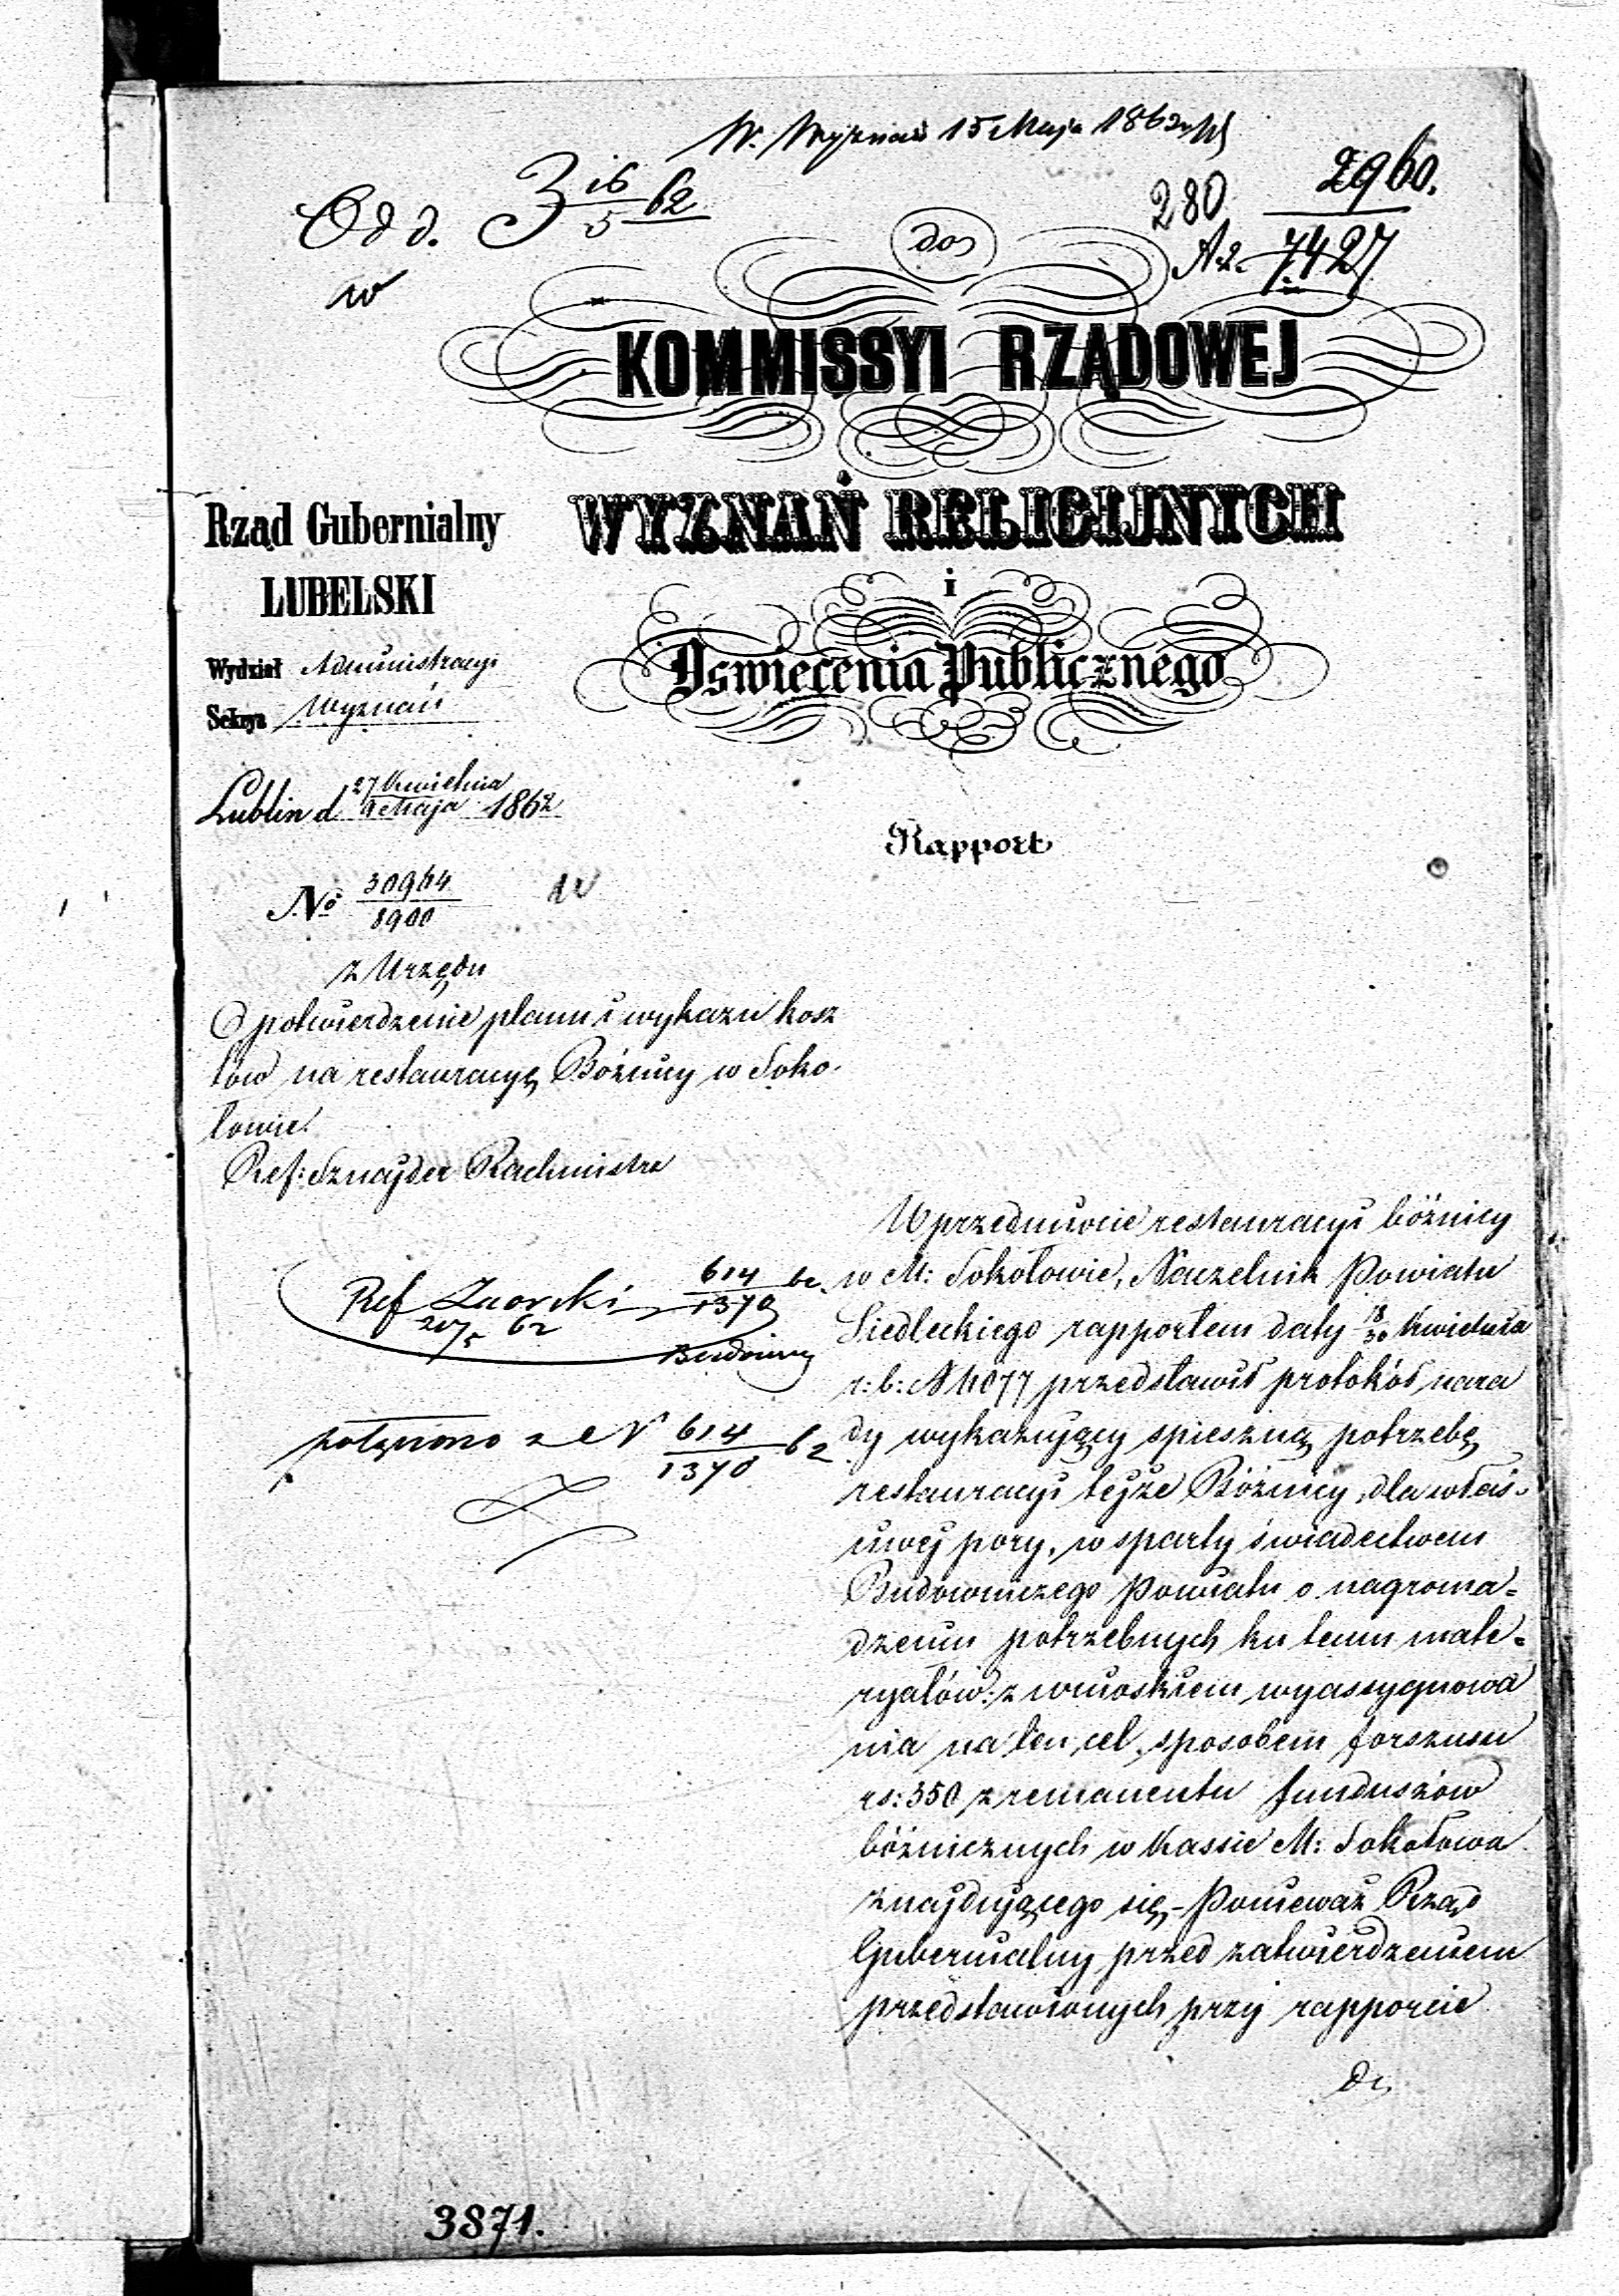 W. Wyznań 15 Maja 1862
Odd. 3 16/5 62
w
280
2960.
7427
do
KOMMISSYI RZĄDOWEJ
WYZNAŃ RELIGIJNYCH
i
Oświecenia Publicznego
Rząd Gubernialny
LUBELSKI
Wydział Administracyi
Sekcya Wyznań
Lublin d 27 Kwietnia/9 Maja 1862
Rapport
No 30964/8900
z Urzędu
O potwierdzenie planu i wykazu kosz
tów na restauracyę Bóżnicy w Soko-
łowie.
Ref: Sznayder Rachmistrz
Ref Znorski 614/1370 62
20/5 62
Budowniczy
połączono z N 614/1370 62
W przedmiocie restauracyi bóżnicy
w M: Sokołowie, Naczelnik Powiatu
Siedleckiego rapportem daty 18/30 Kwietnia
r: b: N 11077 przedstawił protokół nara
dy wykazujący spieszną potrzebę
restauracyi tejże Bóżnicy, dla właś-
ciwej pory, wsparty świadectwem
Budowniczego Powiatu o nagroma=
dzeniu potrzebnych ku temu mate=
ryałów: z wnioskiem wyassygnowa
nia na ten cel, sposobem forszusu
rs: 350 z remanentu funduszów
bóżnicznych w Kassie M: Sokołowa
znajdującego się, - Ponieważ Rząd
Gubernialny przed zatwierdzeniem
przedstawionych przy rapporcie
3871.